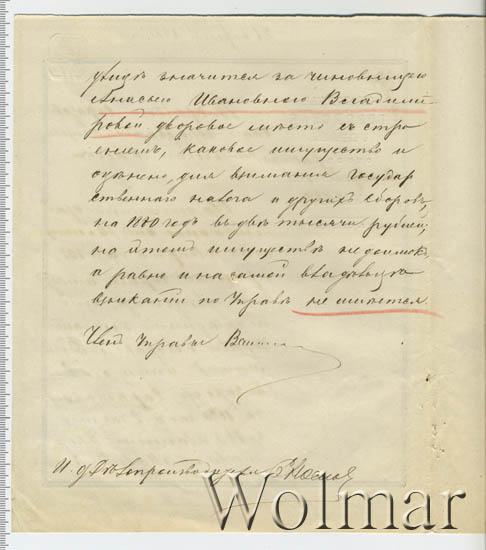 улицѣ значится за чиновницею
Анисьею Ивановною Владимі
ровой дворовое мѣсто съ стро
еніемъ, каковое имущество и
оцѣнено, для взиманія Государ
ственнаго налога и другихъ сборовъ,
на 1880 годъ въ двѣ тысячи рублей;
на этомъ имуществѣ недоимокъ,
а равно и на самой владѣлицѣ
взысканій по Управѣ не имѣется.
Членъ Управы
И. д. Дѣлопроизводителя
Wolmar